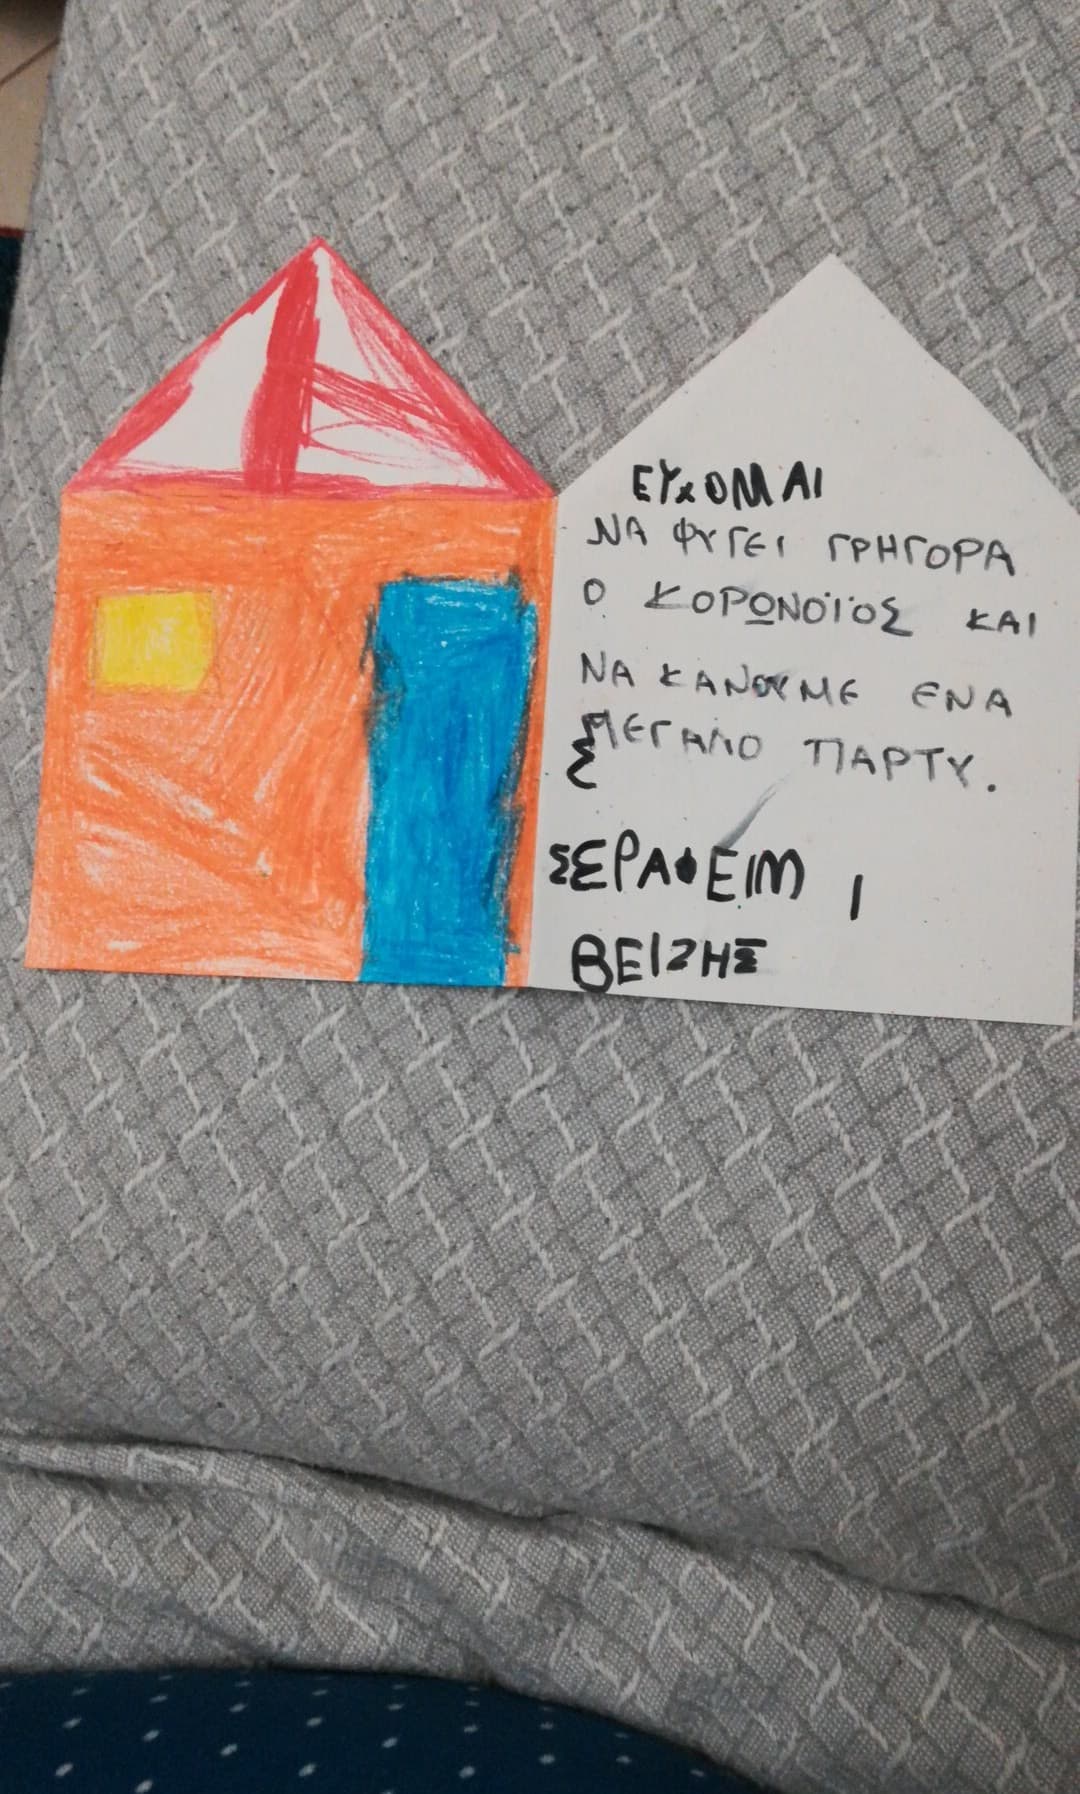 ΕΥΧΟΜΑΙ
ΝΑ ΦΥΓΕΙ ΓΡΗΓΟΡΑ
Ο ΚΟΡΩΝΟΪΟΣ ΚΑΙ
ΝΑ ΚΑΝΟΥΜΕ ΕΝΑ
ΜΕΓΑΛΟ ΠΑΡΤΥ.
Σ
ΣΕΡΑΦΕΙΜ Ι
ΒΕΙΖΗΣ